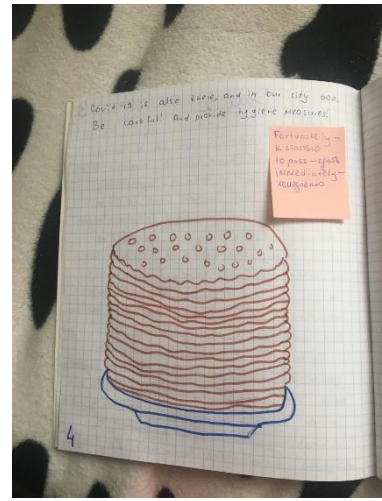 Covid-19 is also there, and in our city too.
Be careful! And provide hygiene measures!
Fortunately –
к счастью
to pass –
immediately –
немедленно
4